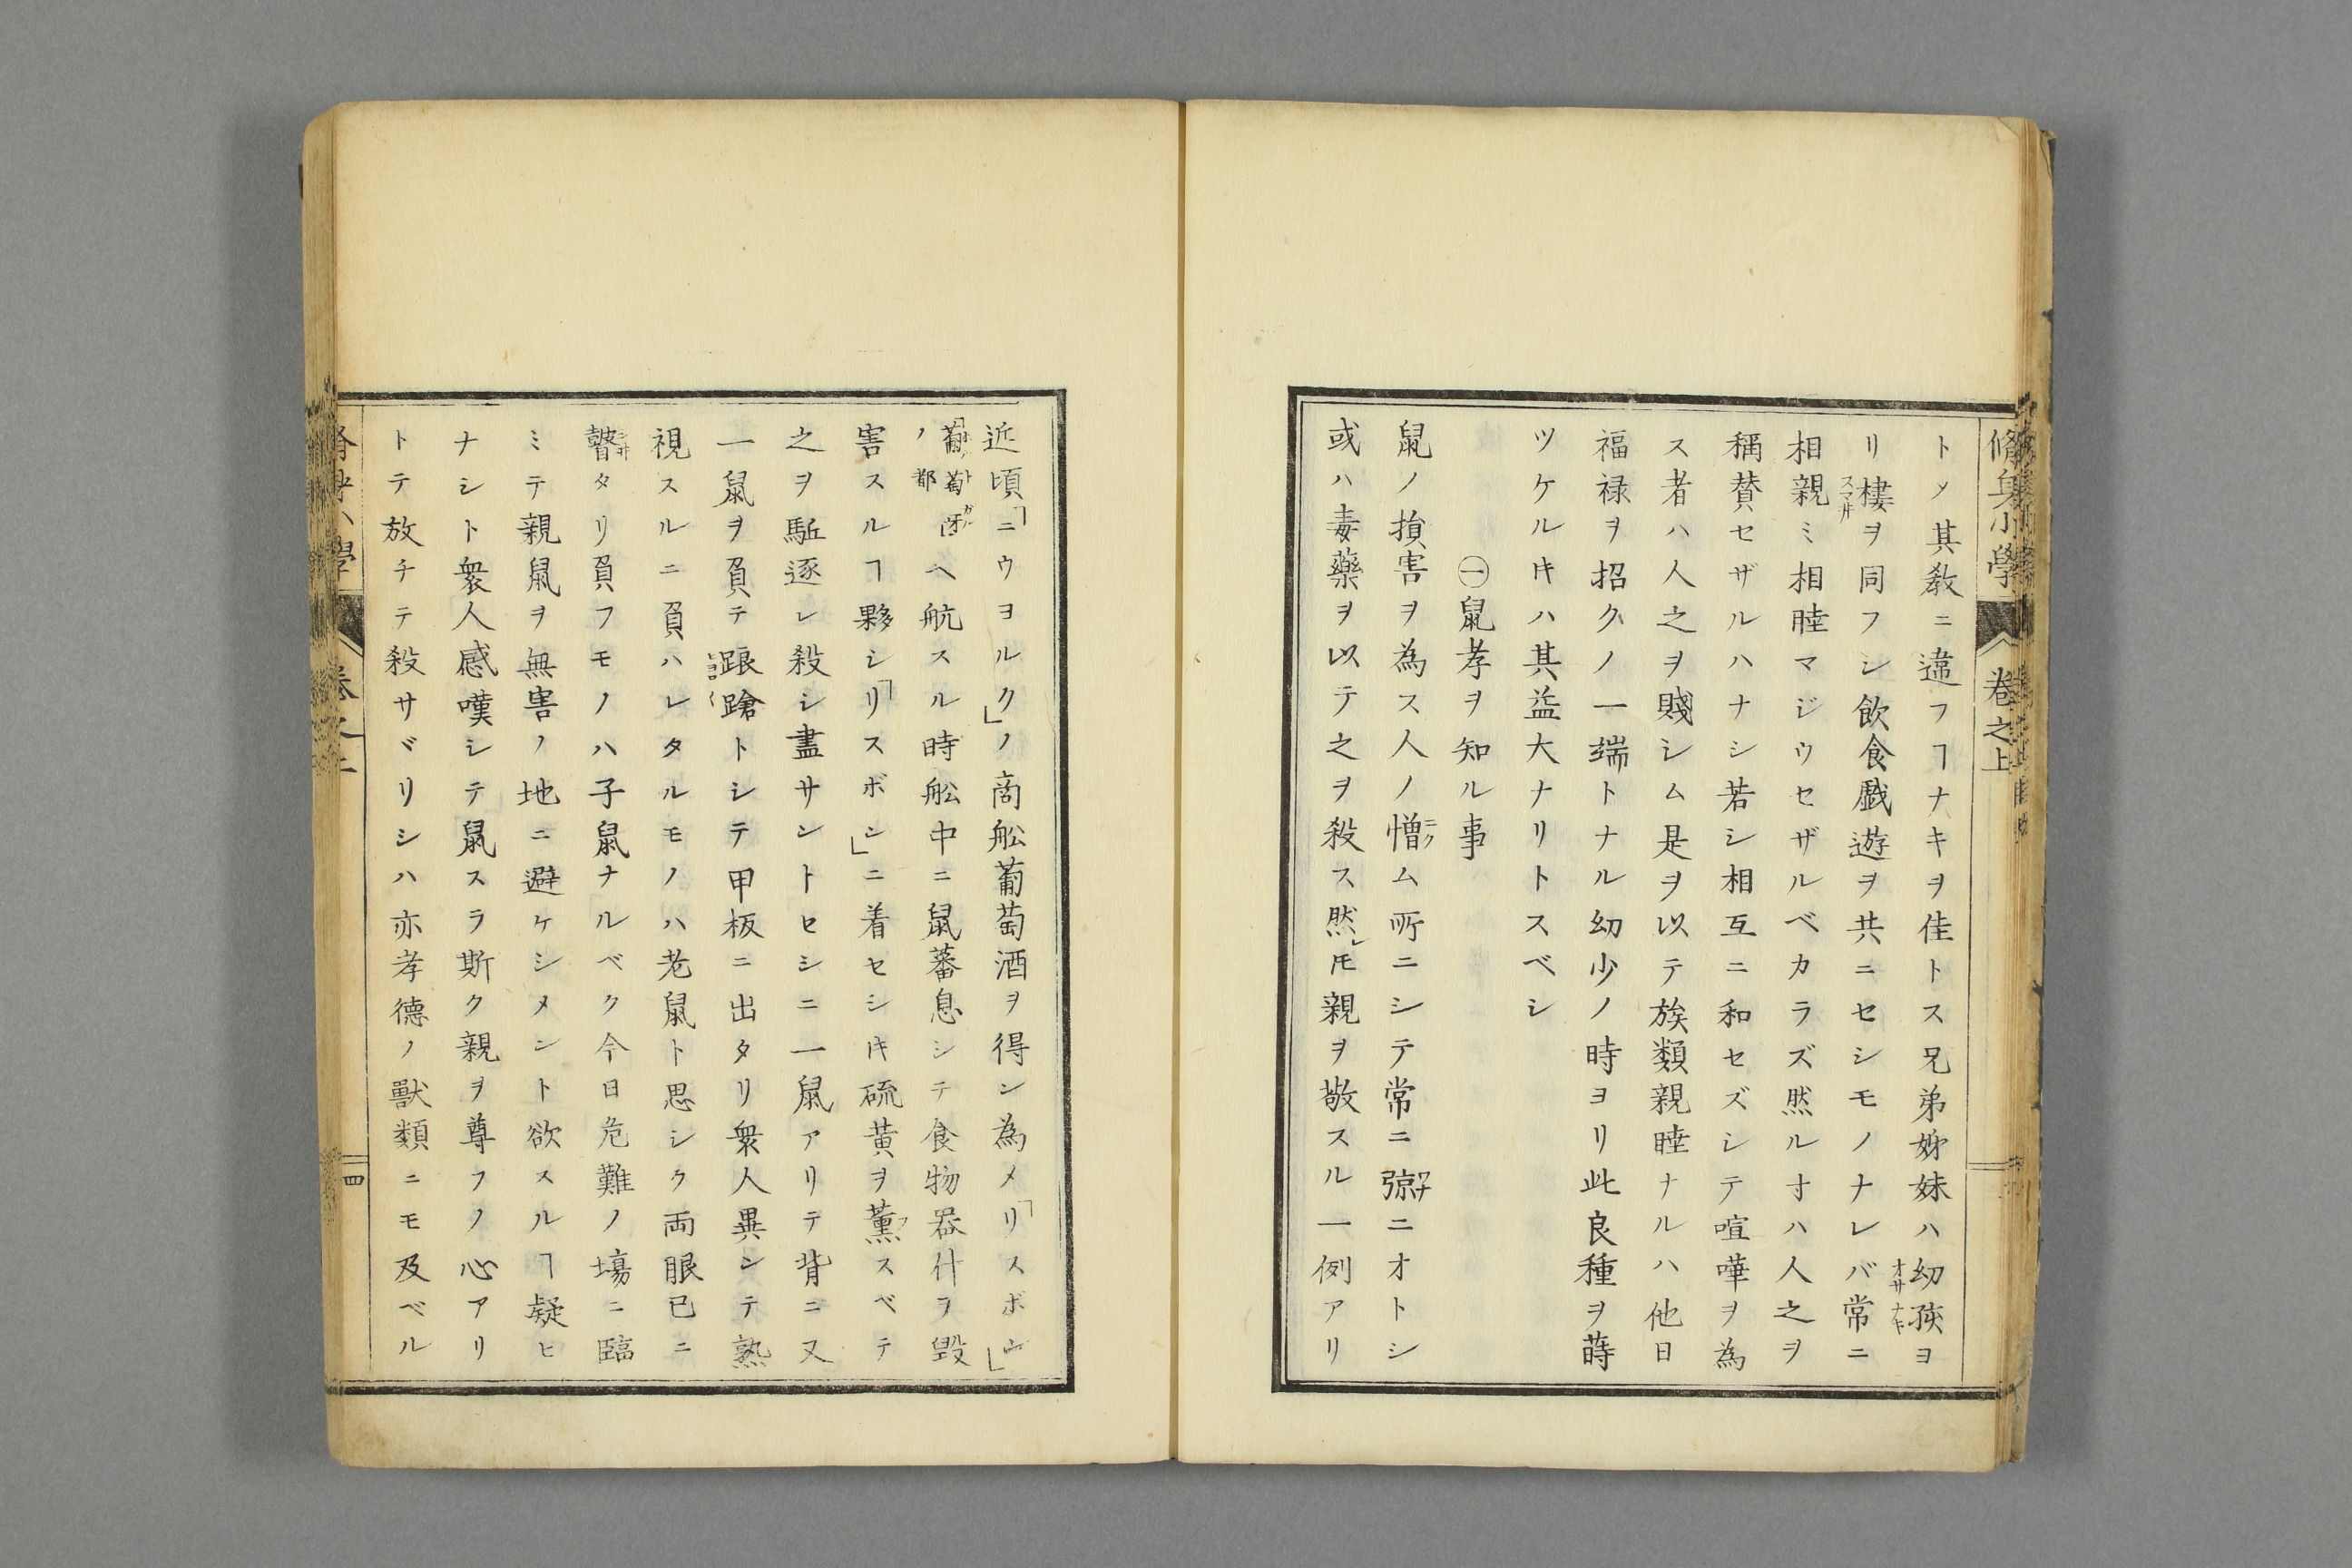 脩身小學 卷之上
トメ其敎ニ違フヿナキヲ佳トス兄弟姊妹ハ幼孩ヨ
オサナキ
リ棲ヲ同フシ飮食戯遊ヲ共ニセシモノナレバ常ニ
スマ井
相親ミ相睦マジウセザルベカラズ然ルオハ人之ヲ
稱賛セザルハナシ若シ相互ニ和セズシテ喧嘩ヲ為
ス者ハ人之ヲ賤シム是ヲ以テ族類親睦ナルハ他日
福禄ヲ招クノ一端トナル幼少ノ時ヨリ此良種ヲ蒔
ツケルㇳキハ其益大ナリトスベシ
㊀鼠孝ヲ知ル事
鼠ノ損害ヲ為ス人ノ憎ム所ニシテ常ニ弶ニオトシ
ニク
ワナ
或ハ毒藥ヲ以テ之ヲ殺ス然レ𪜈親ヲ敬スル一例アリ
近頃「ニウヨルク」ノ商舩葡萄酒ヲ得ン為メ「リスボウ」
「葡萄牙ノ都」ヘ航スル時舩中ニ鼠蕃息シテ食物器什ヲ毀
害スルヿ夥シ「リスボン」ニ着セシㇳキ硫黄ヲ薫スベテ
之ヲ駈逐レ殺シ盡サントセシニ一鼠アリテ背ニ又
一鼠ヲ負テ踉蹌トシテ甲板ニ出タリ衆人異シテ熟
ヒヨロ〱
視スルニ負ハレタルモノハ老鼠ト思シク両眼已ニ
瞽タリ負フモノハ子鼠ナルベク今日危難ノ塲ニ臨
ミテ親鼠ヲ無害ノ地ニ避ケシメント欲スルヿ疑ヒ
ナシト衆人感嘆シテ鼠スラ斯ク親ヲ尊フノ心アリ
トテ放チテ殺サヾリシハ亦孝德ノ獸類ニモ及ベル
四